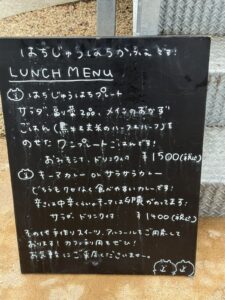 はちじゅうはちかふぇです!
LUNCH MENU
① はちじゅうはちプレート
サラダ、副菜2品、メインのおかず
ごはん(黒千石玄米のハーフ&ハーフ)を
のせたワンプレートごはんです!
おみそしる、ドリンク付 ¥1500(税込)
② キーマカレー or サラサラカレー
どちらもクセがなく食べやすいカレーです!
辛さは中辛くらい、キーマは卵黄がのってます!
サラダ、ドリンク付 ¥1400(税込)
その他手作りスイーツ、アルコールもご用意して
おります! カフェ利用もぜひ!
お気軽にご来店くださいませ。